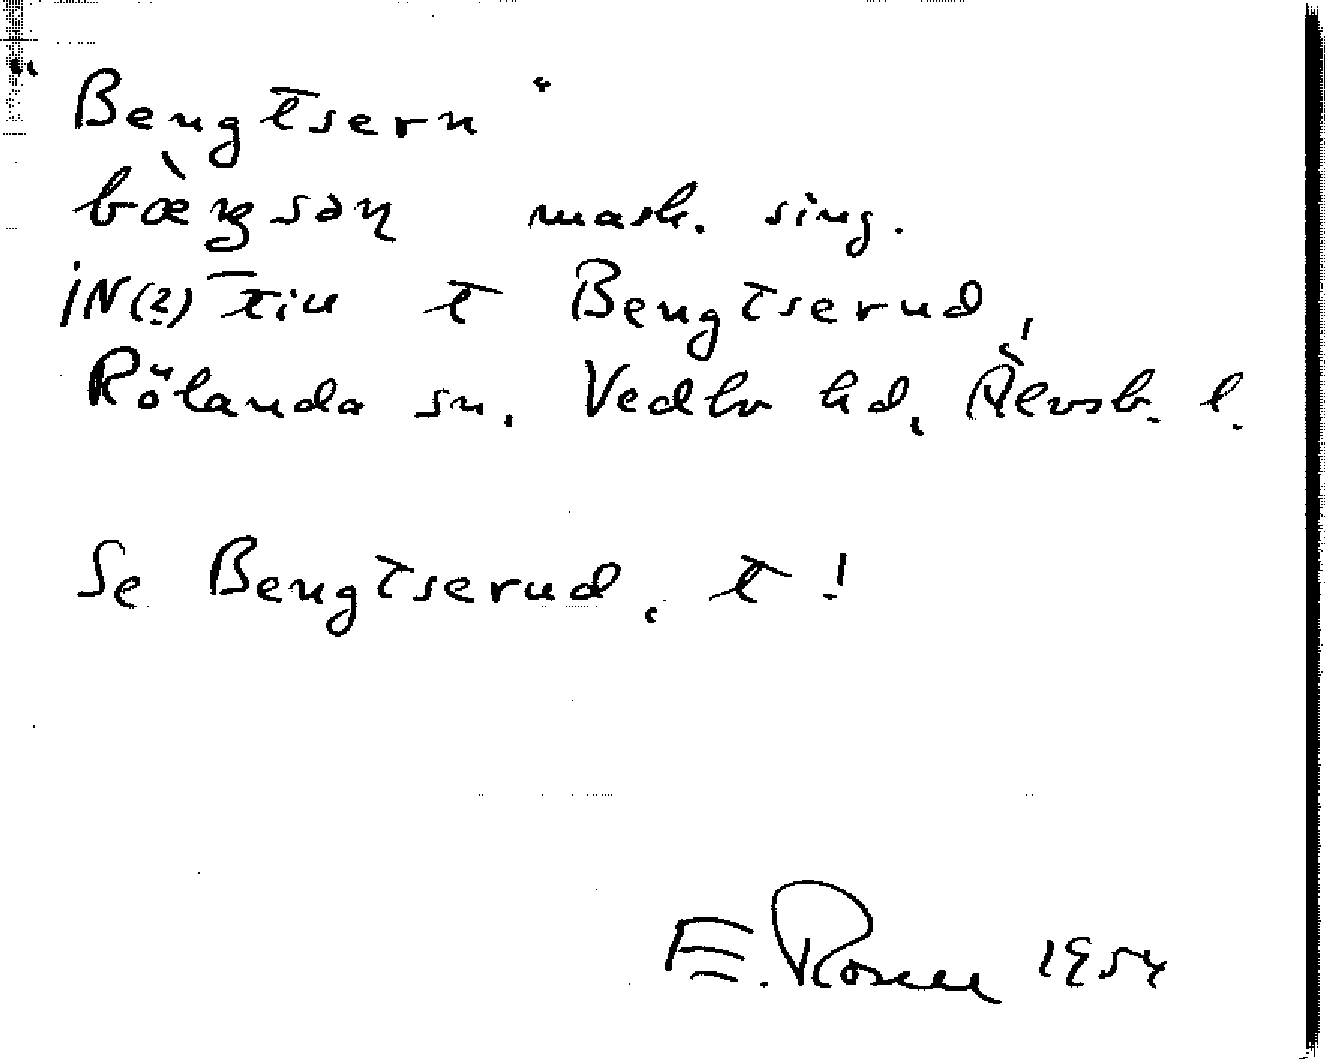 "Bengtsern"
bæ̀ŋsəɳ mask. sing.
IN(?) till t Bengtserud,
Rölanda sn. Vedbo hd, Älvsb. l.
Se Bengtserud, t!
E. Rosell 1954